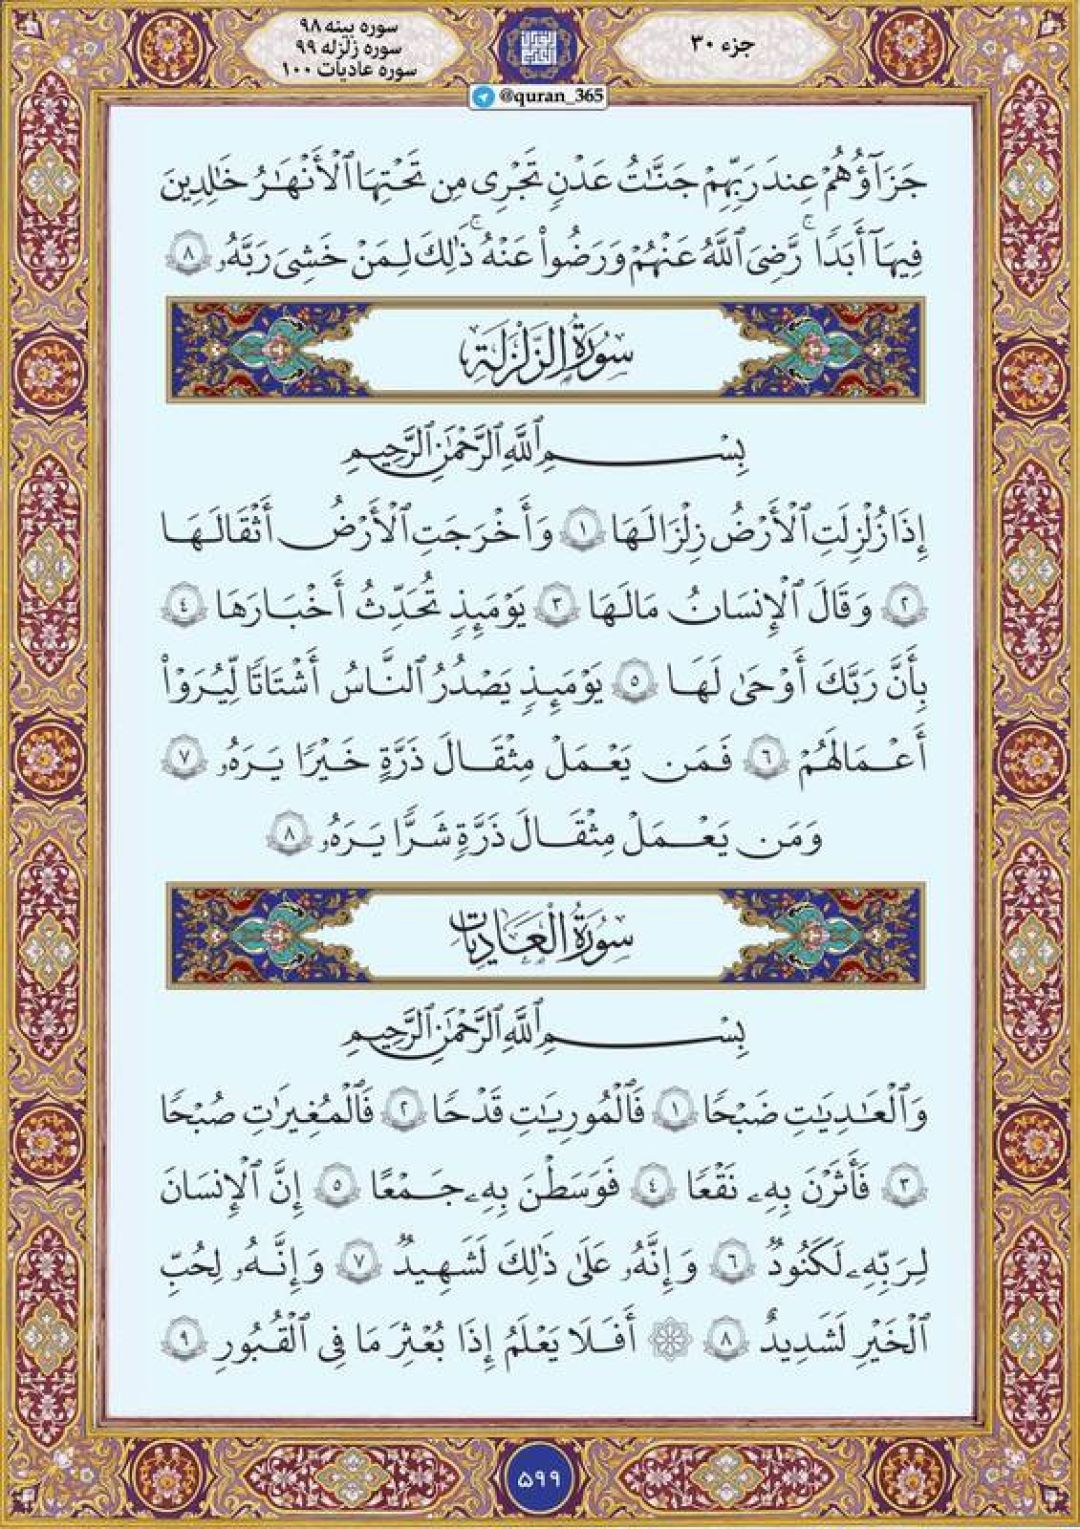 سوره بینه ۹۸
سوره زلزله ۹۹
سوره عادیات ۱۰۰
جزء ۳۰
@quran_365
جَزَآؤُهُمْ عِندَ رَبِّهِمْ جَنَّٰتُ عَدْنٍ تَجْرِى مِن تَحْتِهَا ٱلْأَنْهَٰرُ خَٰلِدِينَ
فِيهَآ أَبَدًا ۖ رَّضِىَ ٱللَّهُ عَنْهُمْ وَرَضُوا۟ عَنْهُ ۚ ذَٰلِكَ لِمَنْ خَشِىَ رَبَّهُۥ ٨
سُورَةُ الزَّلْزَلَةِ
بِسْمِ ٱللَّهِ ٱلرَّحْمَٰنِ ٱلرَّحِيمِ
إِذَا زُلْزِلَتِ ٱلْأَرْضُ زِلْزَالَهَا ١ وَأَخْرَجَتِ ٱلْأَرْضُ أَثْقَالَهَا
٢ وَقَالَ ٱلْإِنسَانُ مَالَهَا ٣ يَوْمَئِذٍ تُحَدِّثُ أَخْبَارَهَا ٤
بِأَنَّ رَبَّكَ أَوْحَىٰ لَهَا ٥ يَوْمَئِذٍ يَصْدُرُ ٱلنَّاسُ أَشْتَاتًا لِّيُرَوْا۟
أَعْمَالَهُمْ ٦ فَمَن يَعْمَلْ مِثْقَالَ ذَرَّةٍ خَيْرًا يَرَهُۥ ٧
وَمَن يَعْمَلْ مِثْقَالَ ذَرَّةٍ شَرًّا يَرَهُۥ ٨
سُورَةُ الْعَادِيَاتِ
بِسْمِ ٱللَّهِ ٱلرَّحْمَٰنِ ٱلرَّحِيمِ
وَٱلْعَٰدِيَٰتِ ضَبْحًا ١ فَٱلْمُورِيَٰتِ قَدْحًا ٢ فَٱلْمُغِيرَٰتِ صُبْحًا
٣ فَأَثَرْنَ بِهِۦ نَقْعًا ٤ فَوَسَطْنَ بِهِۦ جَمْعًا ٥ إِنَّ ٱلْإِنسَانَ
لِرَبِّهِۦ لَكَنُودٌ ٦ وَإِنَّهُۥ عَلَىٰ ذَٰلِكَ لَشَهِيدٌ ٧ وَإِنَّهُۥ لِحُبِّ
ٱلْخَيْرِ لَشَدِيدٌ ٨ ۞ أَفَلَا يَعْلَمُ إِذَا بُعْثِرَ مَا فِى ٱلْقُبُورِ ٩
۵۹۹